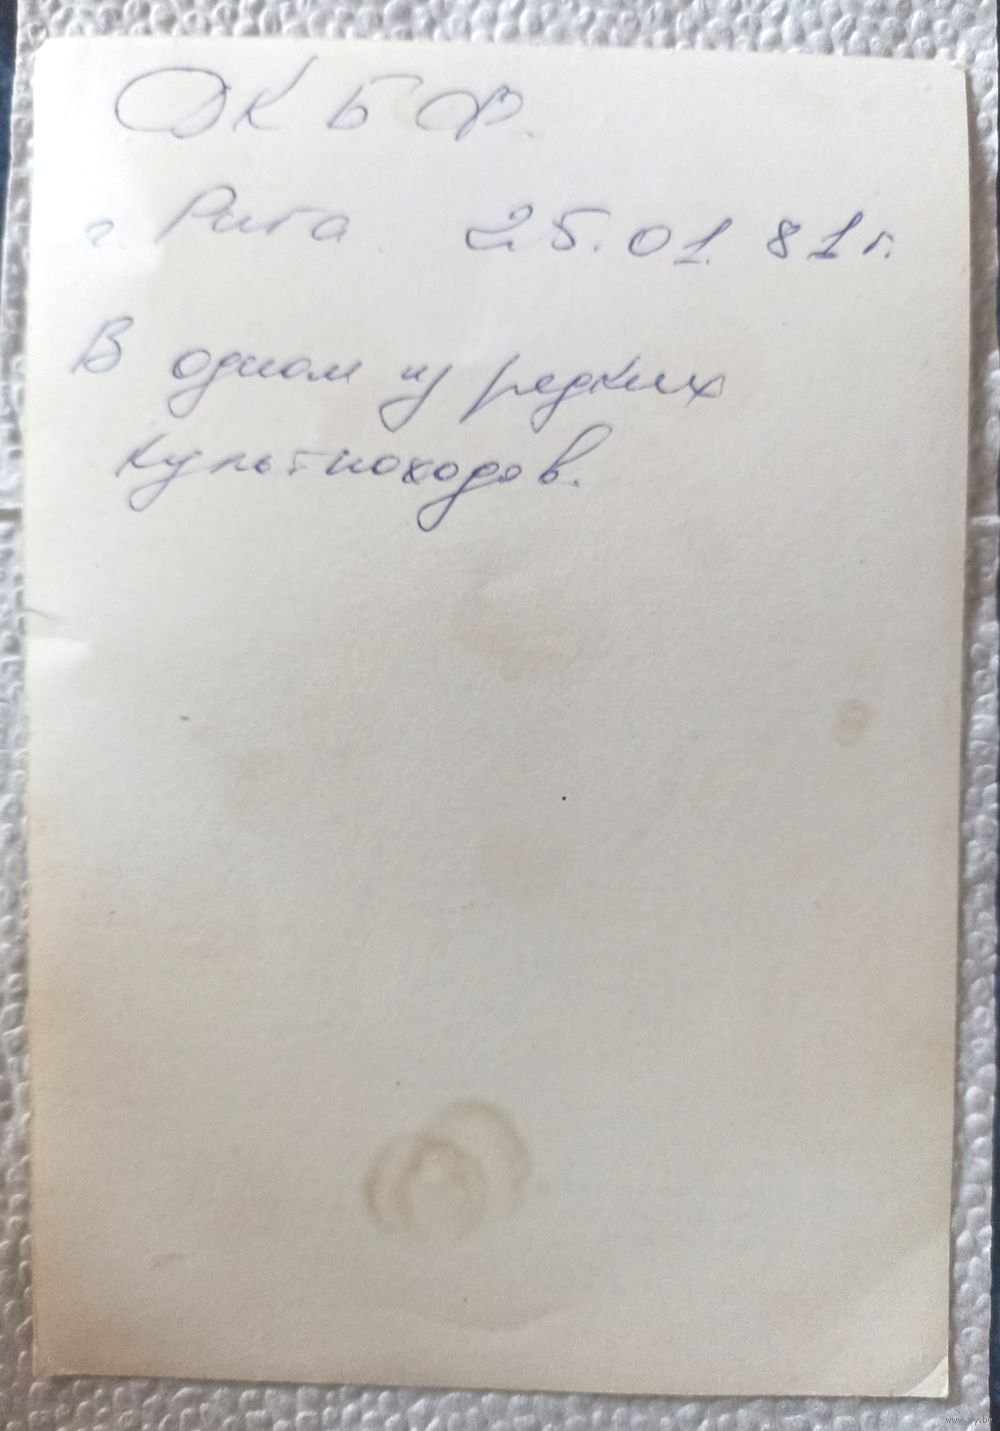 ДКБФ.
г. Рига. 25.01.81г.
В одном из редких
культпоходов.
www.ay.by